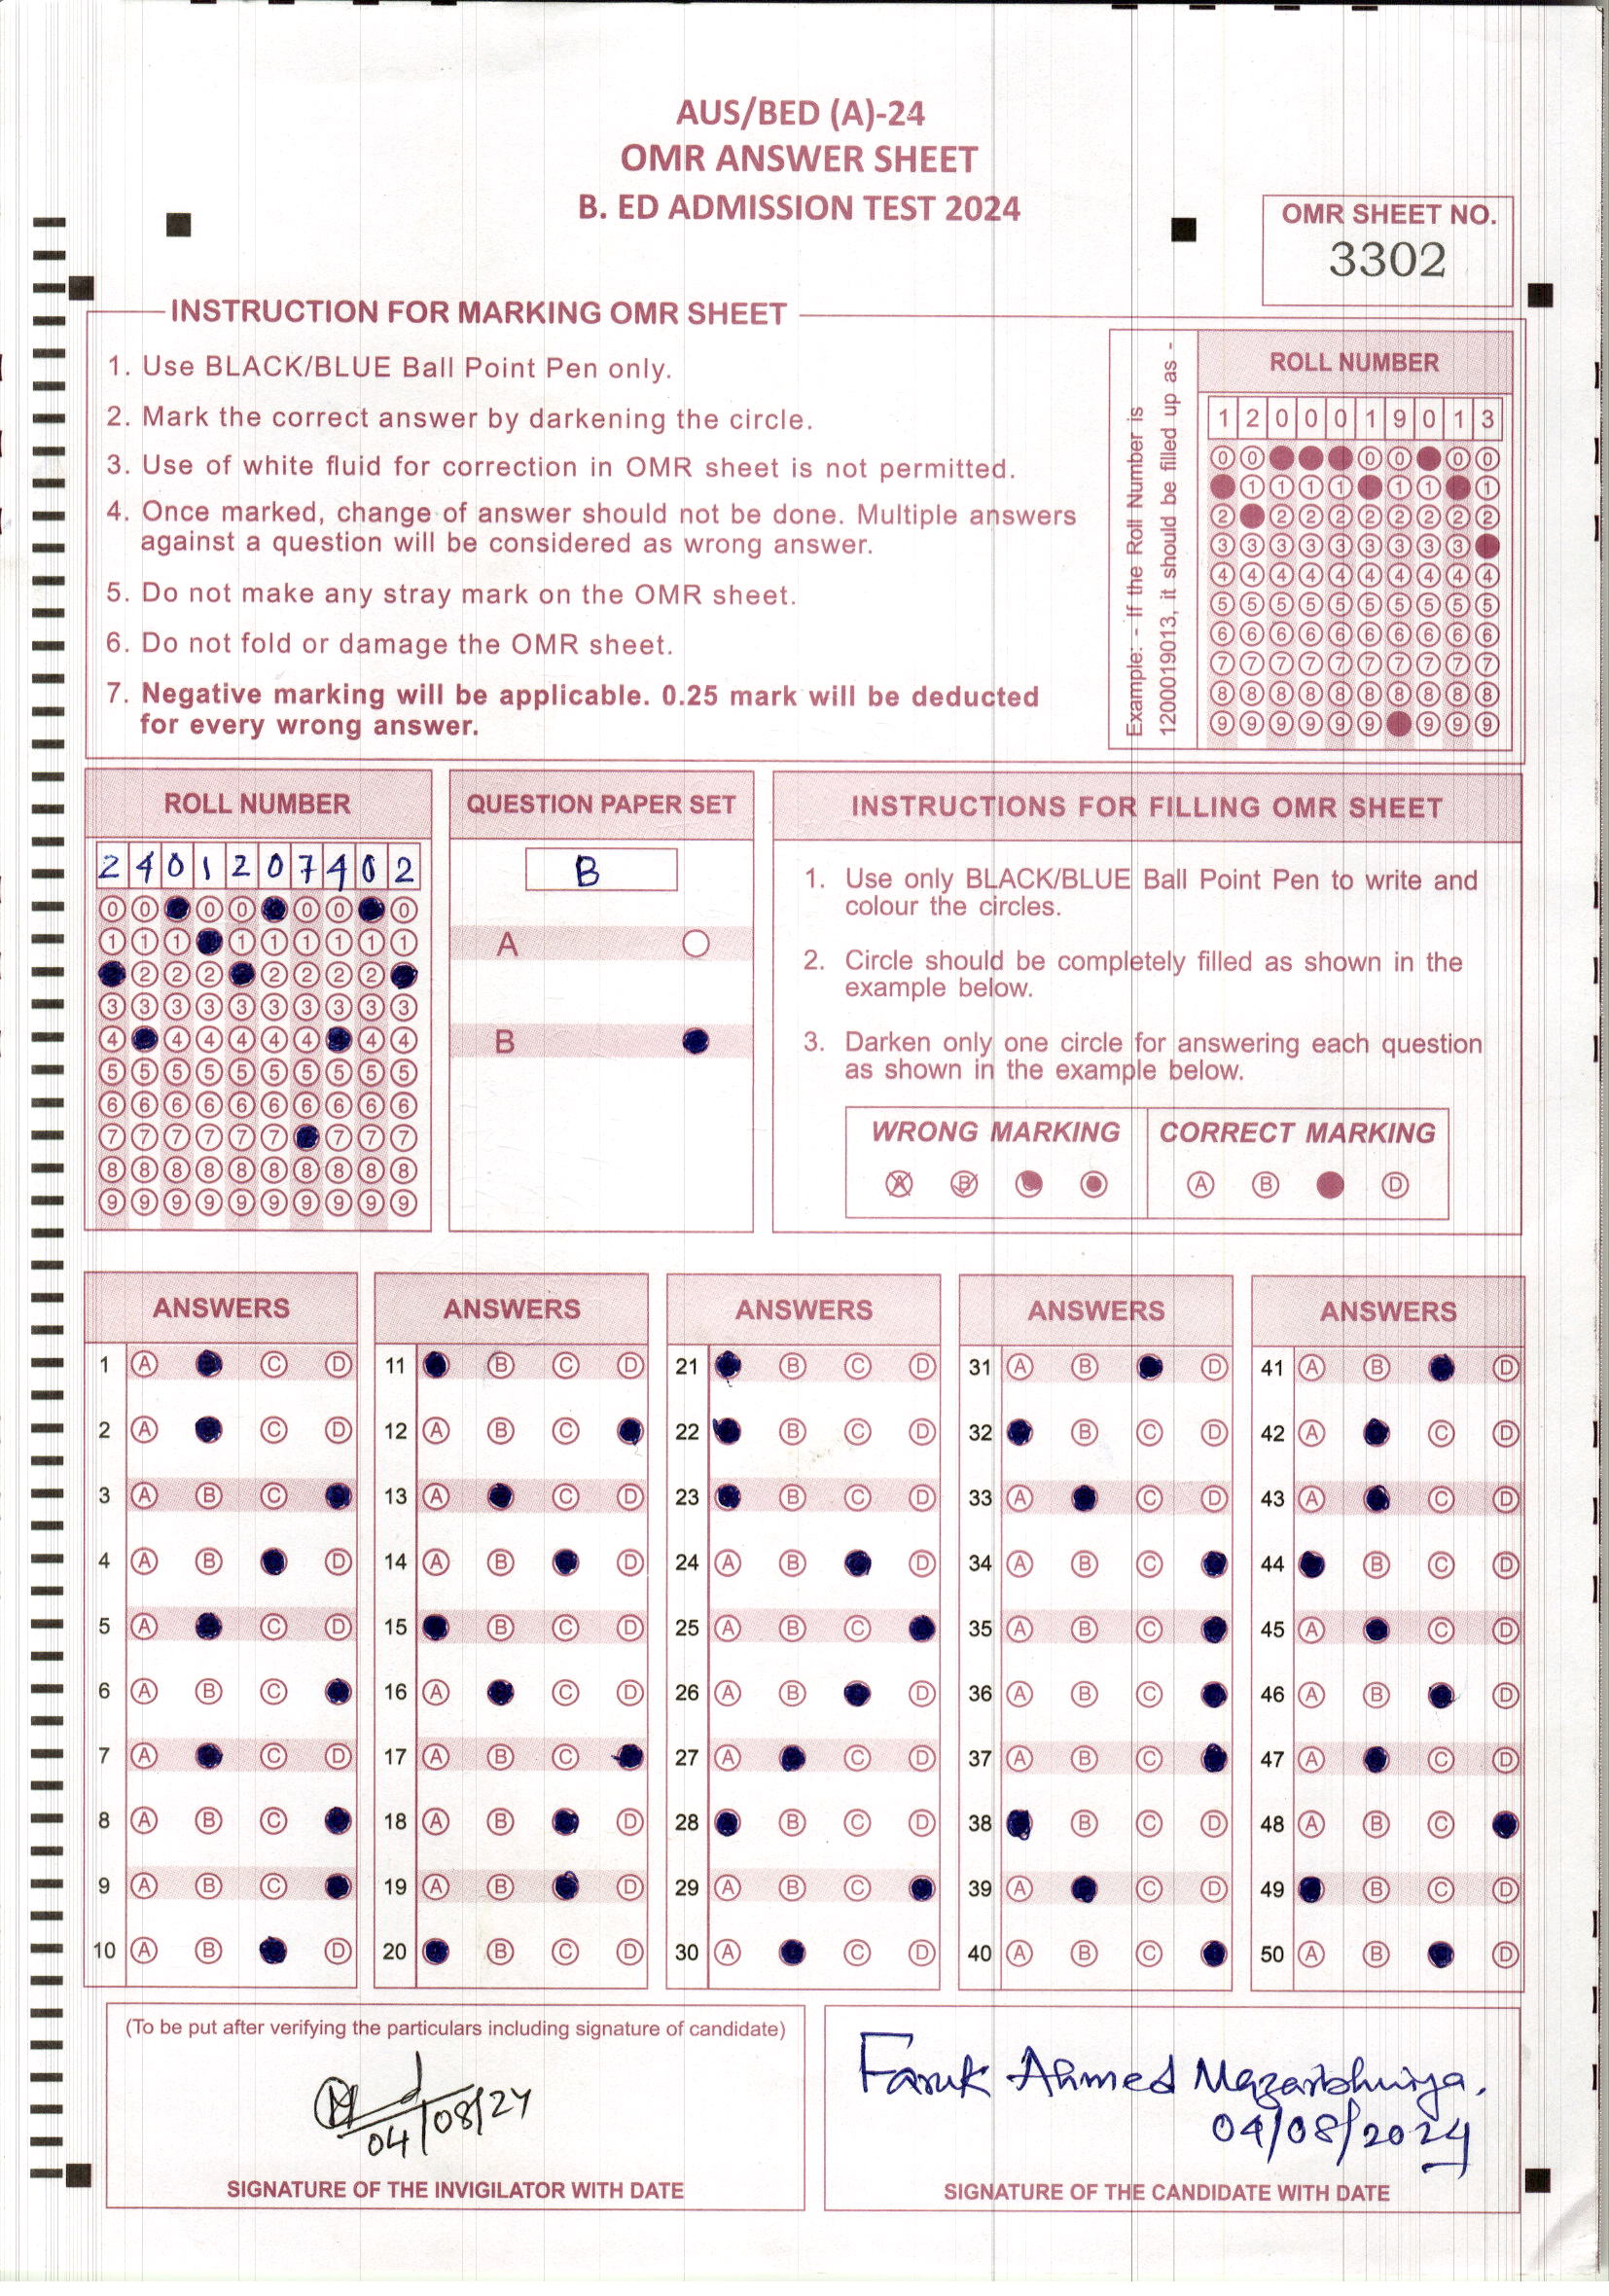 AUS/BED (A)-24
OMR ANSWER SHEET
B. ED ADMISSION TEST 2024
OMR SHEET NO.
3302
INSTRUCTION FOR MARKING OMR SHEET
1. Use BLACK/BLUE Ball Point Pen only.
2. Mark the correct answer by darkening the circle.
3. Use of white fluid for correction in OMR sheet is not permitted.
4. Once marked, change of answer should not be done. Multiple answers
against a question will be considered as wrong answer.
5. Do not make any stray mark on the OMR sheet.
6. Do not fold or damage the OMR sheet.
7. Negative marking will be applicable. 0.25 mark will be deducted
for every wrong answer.
Example: - If the Roll Number is
1200019013, it should be filled up as -
ROLL NUMBER
1 2 0 0 0 1 9 0 1 3
0 0 0 0 0 0
1 1 1 1 1 1 1
2 2 2 2 2 2 2 2 2
3 3 3 3 3 3 3 3 3
4 4 4 4 4 4 4 4 4 4
5 5 5 5 5 5 5 5 5 5
6 6 6 6 6 6 6 6 6 6
7 7 7 7 7 7 7 7 7 7
8 8 8 8 8 8 8 8 8 8
9 9 9 9 9 9 9 9 9
ROLL NUMBER
2 4 0 1 2 0 7 4 0 2
0 0 0 0 0 0 0
1 1 1 1 1 1 1 1 1
2 2 2 2 2 2 2
3 3 3 3 3 3 3 3 3 3
4 4 4 4 4 4 4 4
5 5 5 5 5 5 5 5 5 5
6 6 6 6 6 6 6 6 6 6
7 7 7 7 7 7 7 7 7
8 8 8 8 8 8 8 8 8 8
9 9 9 9 9 9 9 9 9 9
QUESTION PAPER SET
B
A
B
INSTRUCTIONS FOR FILLING OMR SHEET
1. Use only BLACK/BLUE Ball Point Pen to write and
colour the circles.
2. Circle should be completely filled as shown in the
example below.
3. Darken only one circle for answering each question
as shown in the example below.
WRONG MARKING
A B
CORRECT MARKING
A B D
ANSWERS
1 A C D
2 A C D
3 A B C
4 A B D
5 A C D
6 A B C
7 A C D
8 A B C
9 A B C
10 A B D
ANSWERS
11 B C D
12 A B C
13 A C D
14 A B D
15 B C D
16 A C D
17 A B C
18 A B D
19 A B D
20 B C D
ANSWERS
21 B C D
22 B C D
23 B C D
24 A B D
25 A B C
26 A B D
27 A C D
28 B C D
29 A B C
30 A C D
ANSWERS
31 A B D
32 B C D
33 A C D
34 A B C
35 A B C
36 A B C
37 A B C
38 B C D
39 A C D
40 A B C
ANSWERS
41 A B D
42 A C D
43 A C D
44 B C D
45 A C D
46 A B D
47 A C D
48 A B C
49 B C D
50 A B D
(To be put after verifying the particulars including signature of candidate)
04/08/24
SIGNATURE OF THE INVIGILATOR WITH DATE
Faruk Ahmed Mazarbhuiya.
04/08/2024
SIGNATURE OF THE CANDIDATE WITH DATE